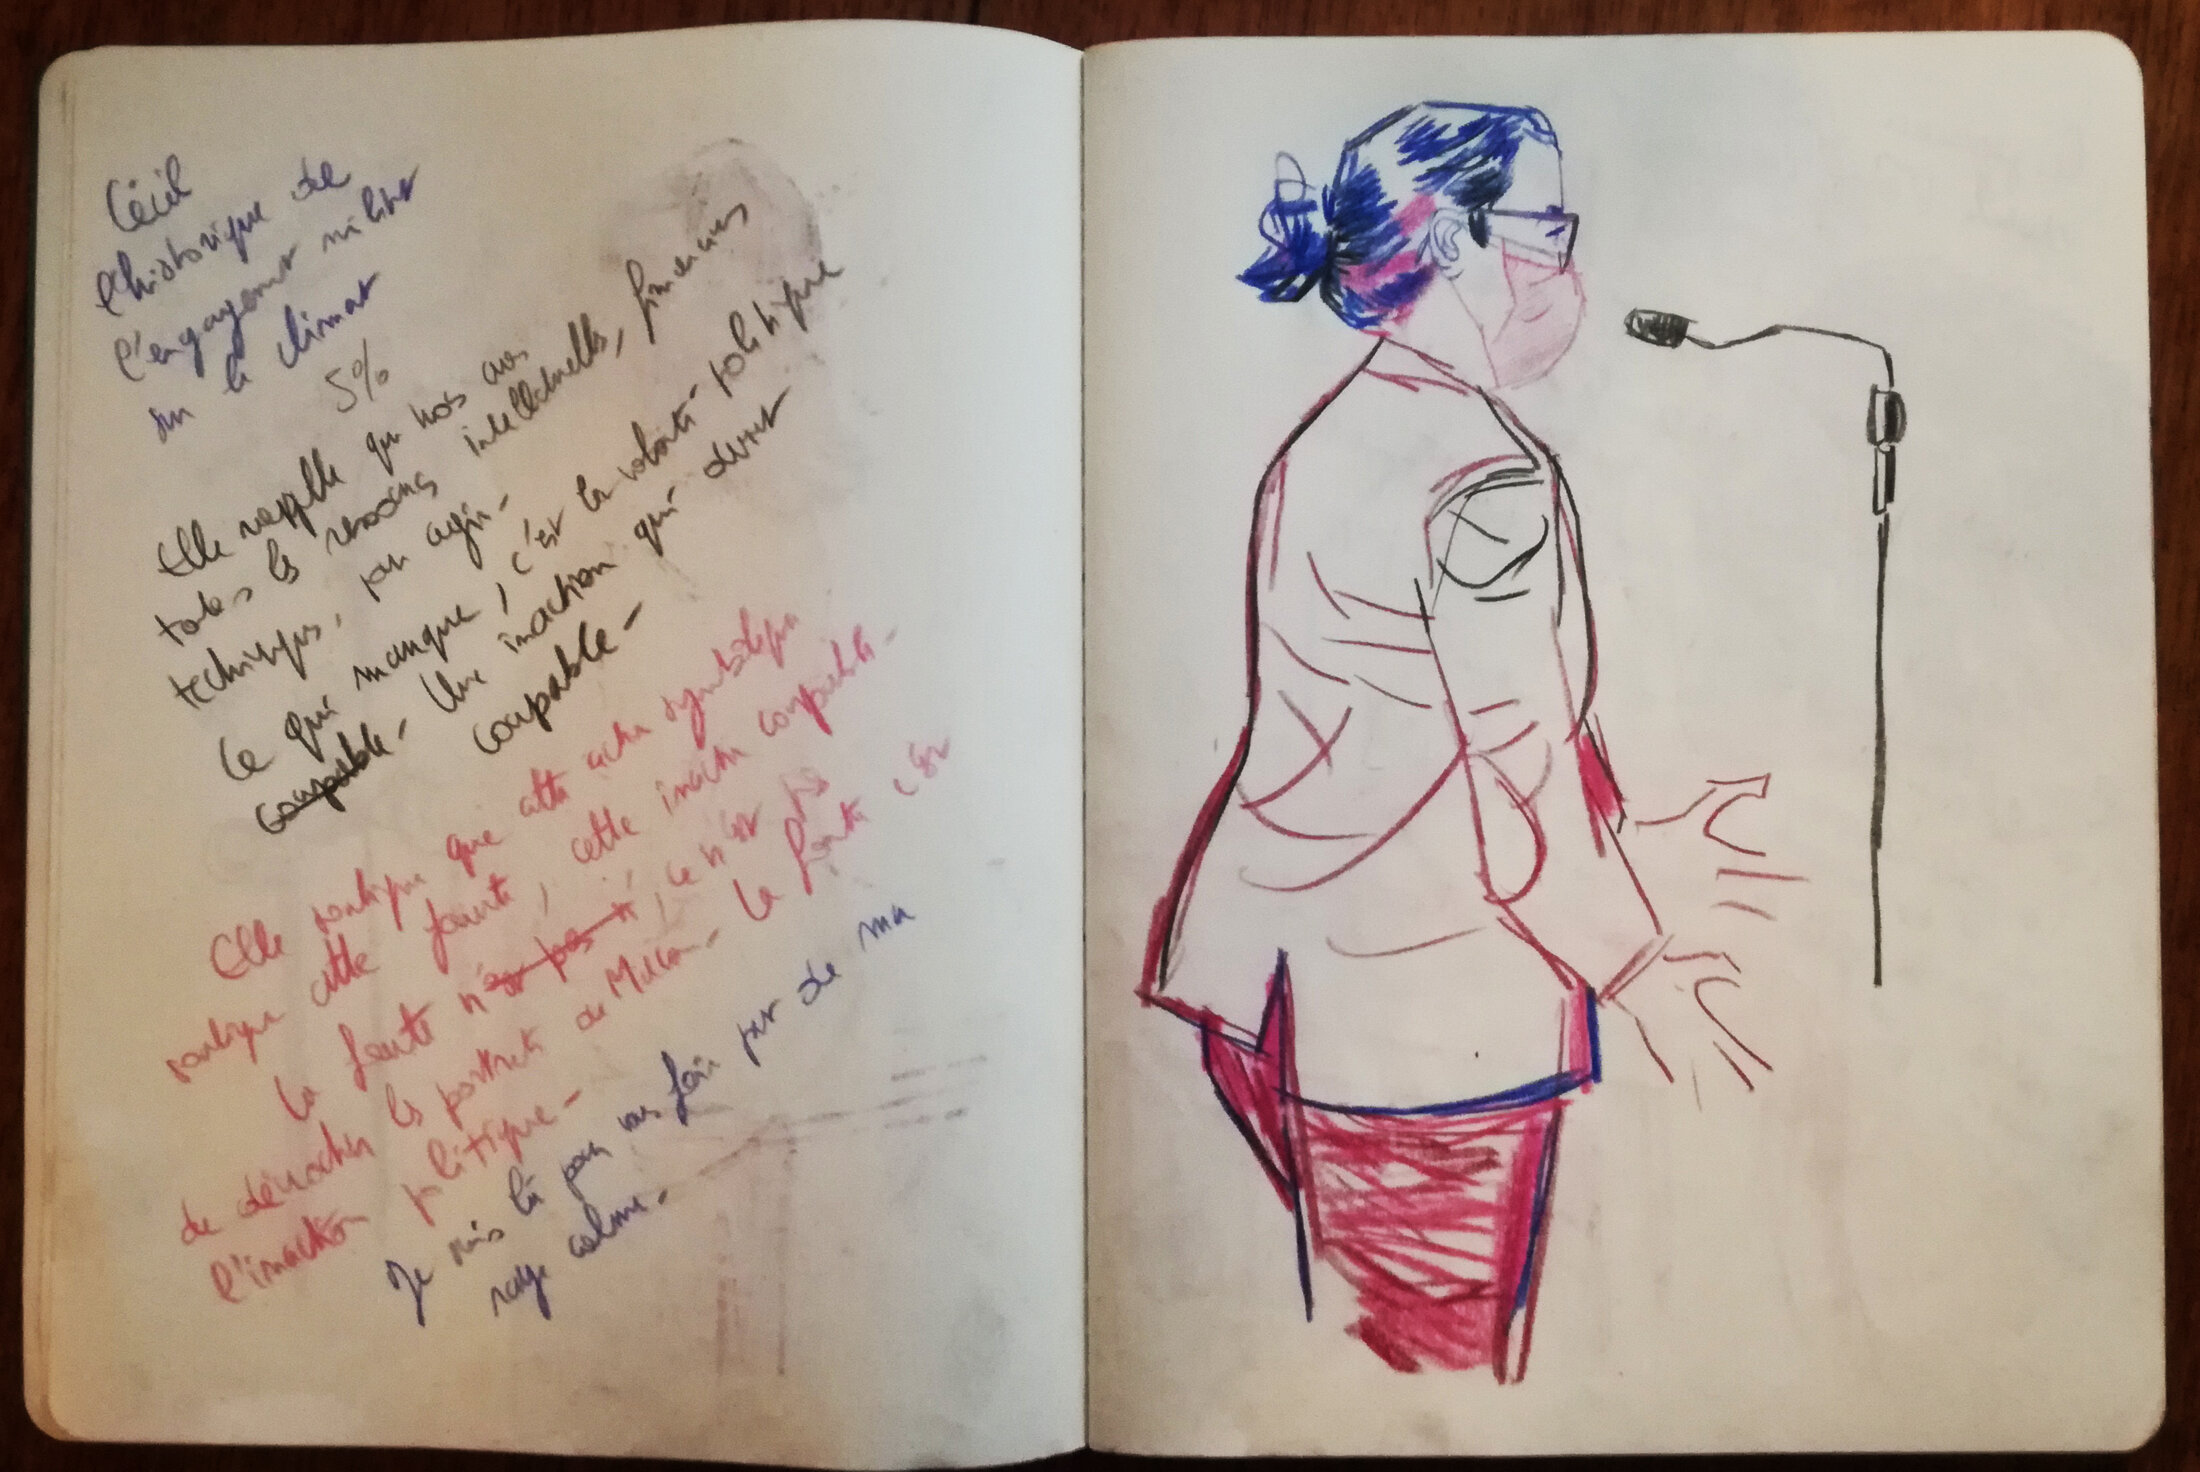 Cécil
l'historique de
l'engagement militant
sur le climat
5%
Elle rappelle que nous avons
toutes les ressources intellectuelles, financières
techniques, pour agir-
Ce qui manque, c'est la volonté politique
coupable- Une inaction qui devient
coupable-
Elle explique que cette action symbolique
explique cette faute, cette inaction coupable-
la faute n'est pas, ce n'est pas
de décrocher les portraits de Macron- La faute c'est
l'inaction politique-
Je suis là pour vous faire part de ma
rage calme-